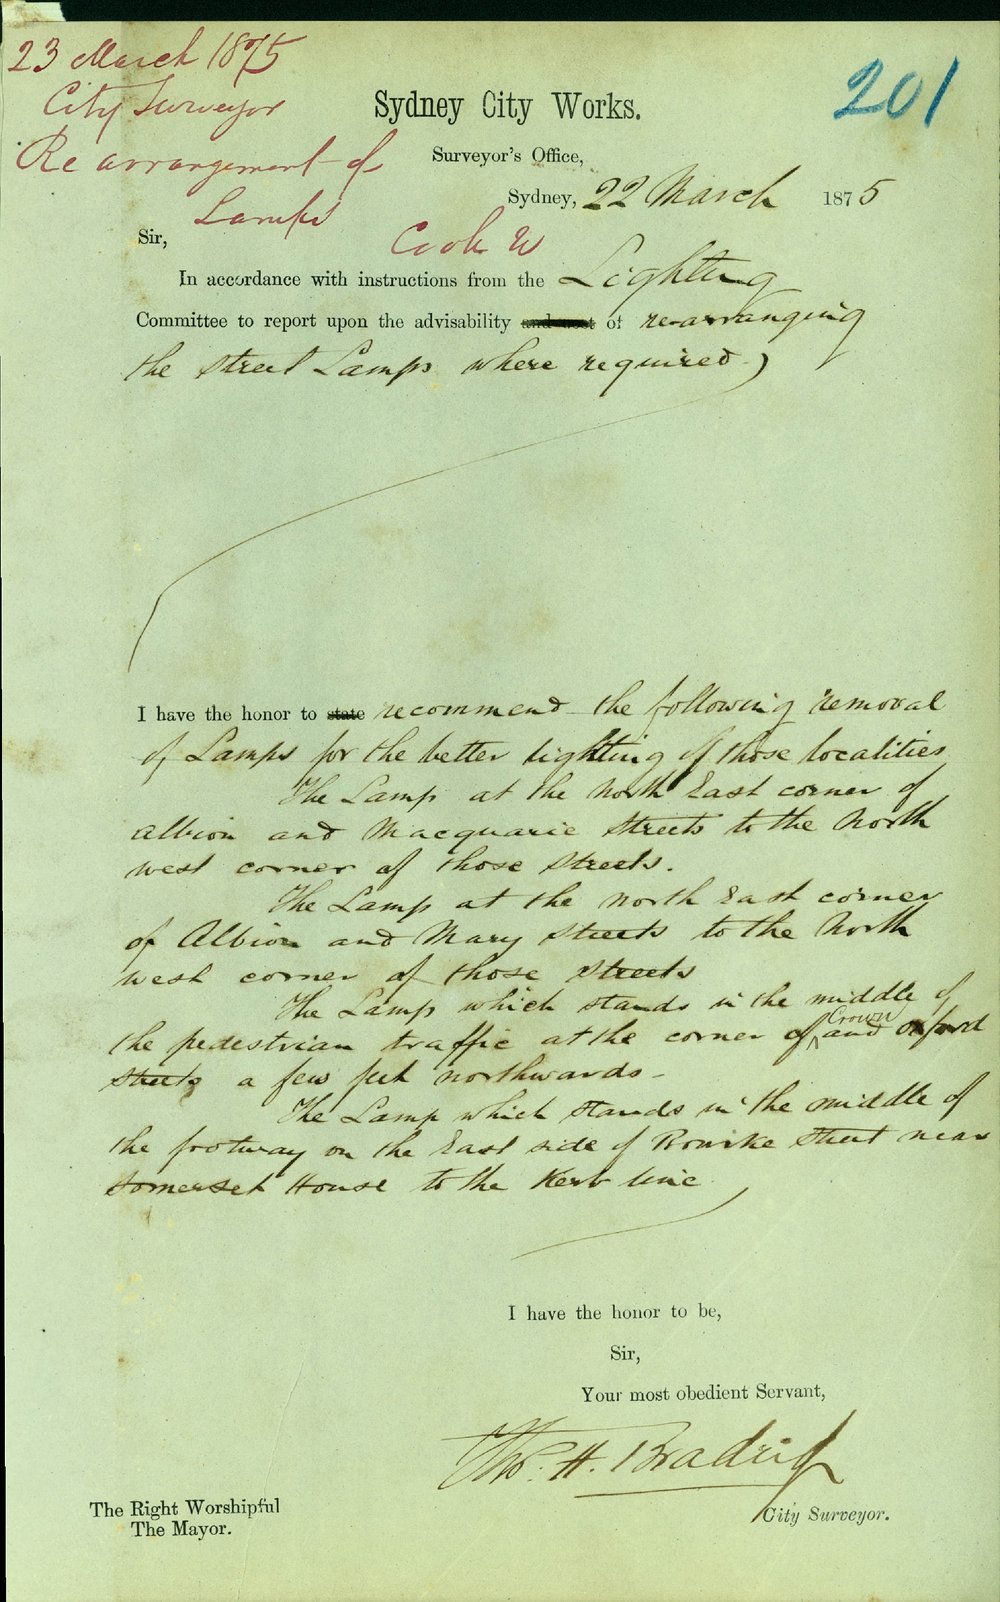 23 March 1875
City Surveyor
Re arrangement of
Lamps
201
Sydney City Works.
Surveyor's Office,
Sydney, 22 March 1875
Cook W
Sir,
In accordance with instructions from the Lighting
Committee to report upon the advisability and cost of re-arranging
the street Lamps where required
I have the honor to state recommend the following removal
of Lamps for the better lighting of those localities
The Lamp at the North East corner of
Albion and Macquarie Streets to the North
west corner of those Streets.
The Lamp at the North East corner
of Albion and Mary Streets to the North
west corner of those Streets
The Lamp which stands in the middle of
the pedestrian traffic at the corner of Crown and Oxford
Streets a few feet northwards -
The Lamp which stands in the middle of
the footway on the East side of Bourke Street near
Somerset House to the Kerb line
I have the honor to be,
Sir,
Your most obedient Servant,
Tho. H. Bradridge
City Surveyor.
The Right Worshipful
The Mayor.